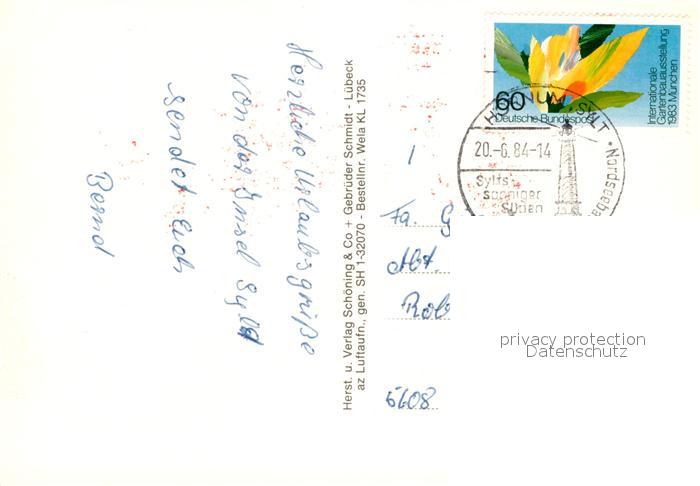 Herzliche Urlaubsgrüße
von der Insel Sylt
sendet Euch
Bernd
Herst. u. Verlag Schöning & Co + Gebrüder Schmidt - Lübeck
az Luftaufn., gen. SH 1-32070 - Bestellnr. Wela KL 1735
60
Deutsche Bundespost
Internationale
Gartenbauausstellung
1983 München
H NUM SYLT • Nordseeba
20.-6.84-14
Sylts
sonniger
Süden
Fa. G
Abt.
Rob
5608
privacy protection
Datenschutz